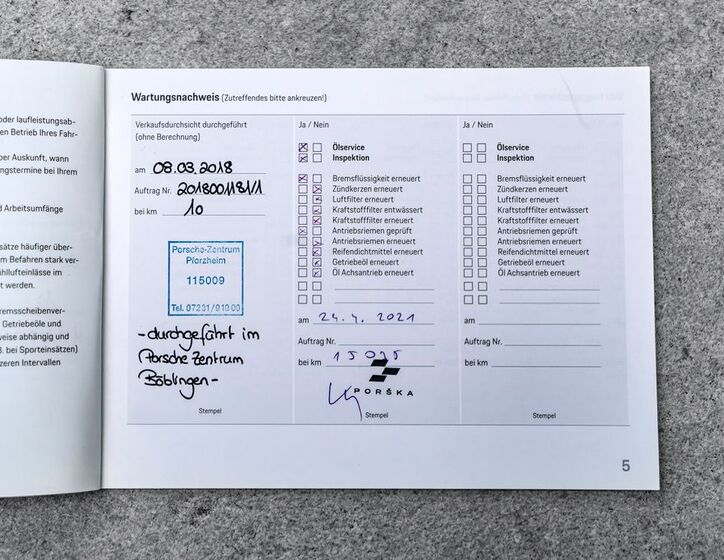 oder laufleistungsab-
en Betrieb Ihres Fahr-
ber Auskunft, wann
ngstermine bei Ihrem
d Arbeitsumfänge
sätze häufiger über-
m Befahren stark ver-
hllufteinlässe im
t werden.
remsscheibenver-
Getriebeöle und
weise abhängig und
B. bei Sporteinsätzen)
zeren Intervallen
Wartungsnachweis (Zutreffendes bitte ankreuzen!)
Verkaufsdurchsicht durchgeführt
(ohne Berechnung)
am 08.03.2018
Auftrag Nr.
bei km 10
Porsche-Zentrum
Pforzheim
115009
Tel. 07231/91900
-durchgeführt im
Porsche Zentrum
Böblingen-
Stempel
Ja / Nein
Ölservice
Inspektion
Bremsflüssigkeit erneuert
Zündkerzen erneuert
Luftfilter erneuert
Kraftstofffilter entwässert
Kraftstofffilter erneuert
Antriebsriemen geprüft
Antriebsriemen erneuert
Reifendichtmittel erneuert
Getriebeöl erneuert
Öl Achsantrieb erneuert
am 24.4.2021
Auftrag Nr.
bei km
PORŠKA
Stempel
Ja / Nein
Ölservice
Inspektion
Bremsflüssigkeit erneuert
Zündkerzen erneuert
Luftfilter erneuert
Kraftstofffilter entwässert
Kraftstofffilter erneuert
Antriebsriemen geprüft
Antriebsriemen erneuert
Reifendichtmittel erneuert
Getriebeöl erneuert
Öl Achsantrieb erneuert
am
Auftrag Nr.
bei km
Stempel
5